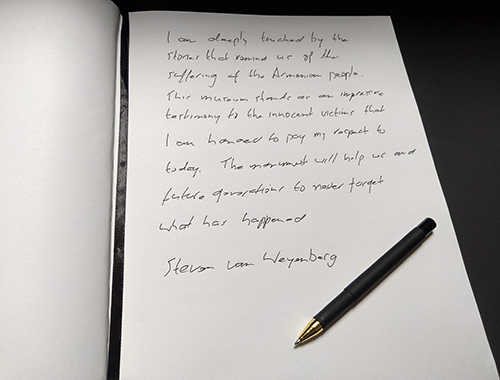 I am deeply touched by the
stories that remind us of the
suffering of the Armenian people.
This museum stands as an impressive
testimony to the innocent victims that
I am honored to pay my respect to
today. The monument will help us and
future generations to never forget
what has happened
Steven van Weyenberg